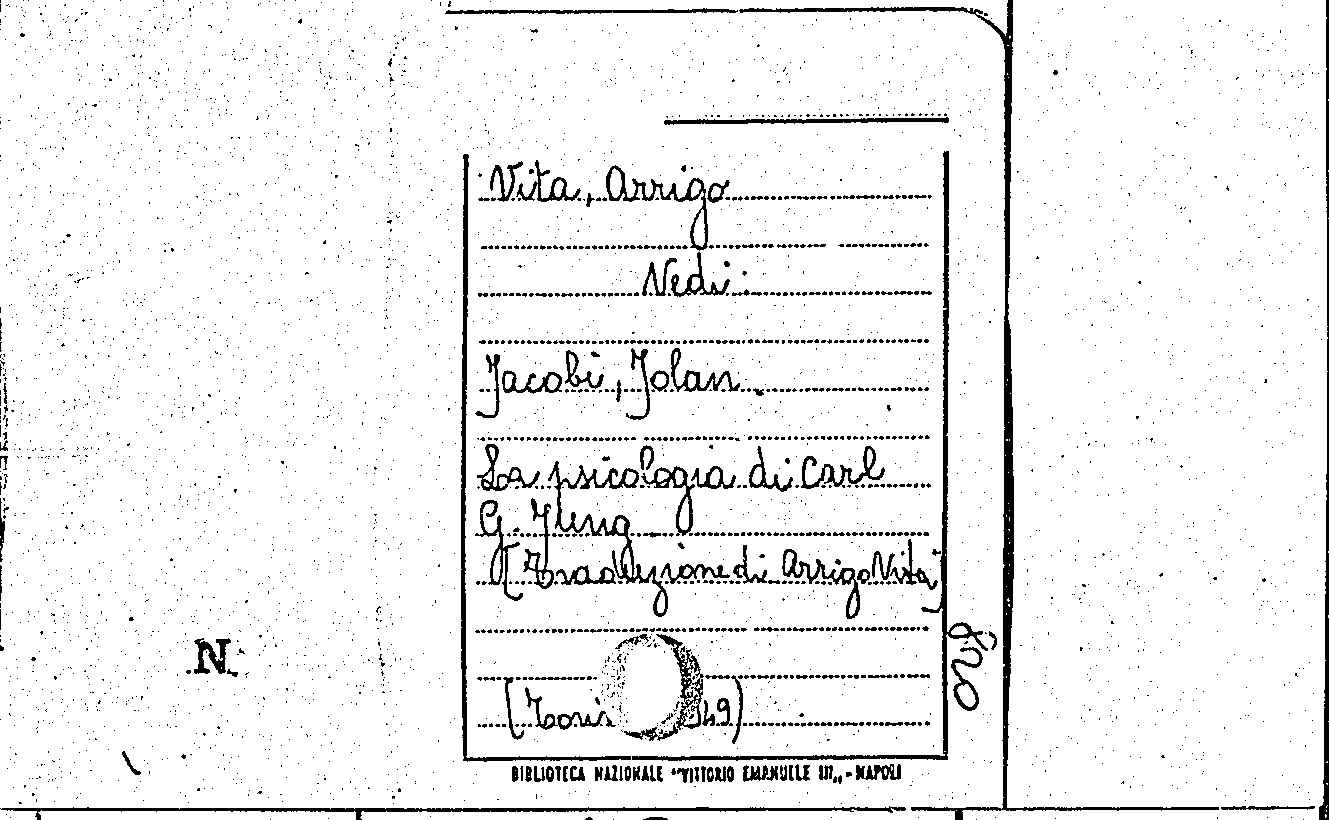 Vita, Arrigo
Vedi:
Jacobi, Jolan.
La psicologia di Carl
G. Jung
[Traduzione di Arrigo Vita]
N
BIBLIOTECA NAZIONALE "VITTORIO EMANUELE III„ - NAPOLI